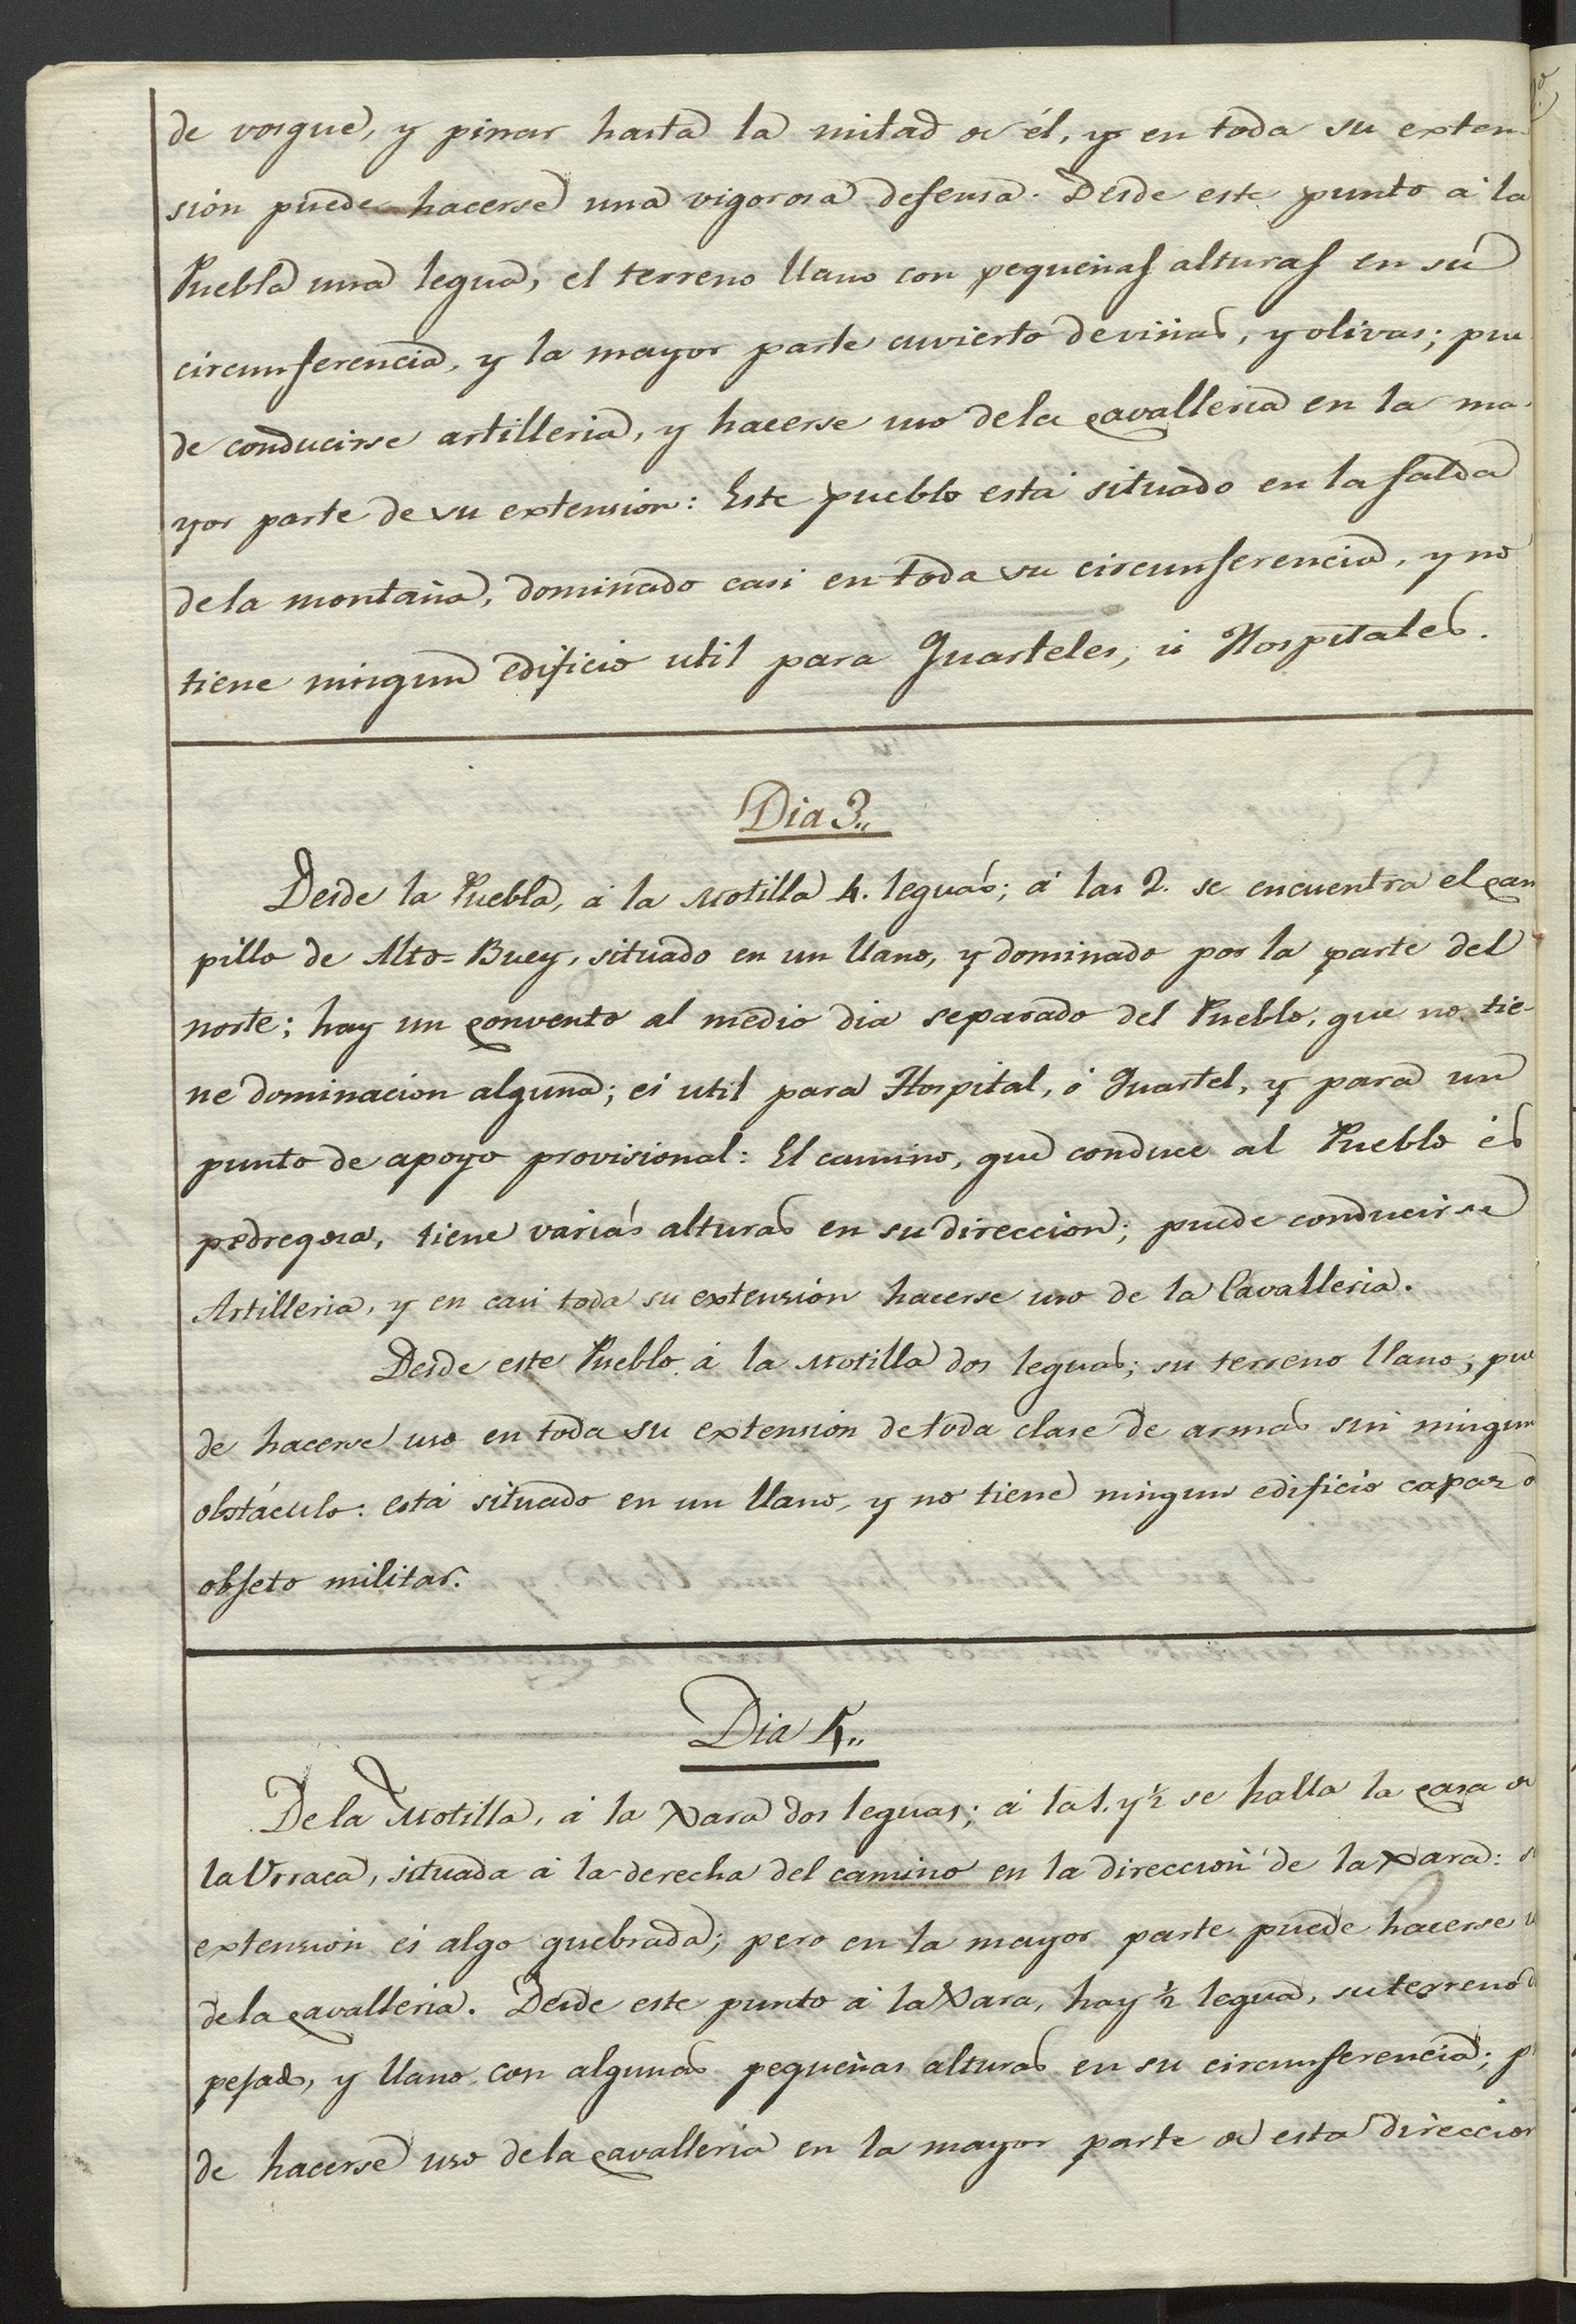 de vosque, y pinar hasta la mitad de él, y en toda su exten-
sion puede hacerse una vigorosa defensa. Desde este punto á la
Puebla una legua, el terreno llano con pequeñas alturas en sú
circunferencia, y la mayor parte cuvierto de viñas, y olivas; pue
de conducirse artilleria, y hacerse uso de la cavalleria en la ma-
yor parte de su extension: Este pueblo está situado en la falda
de la montaña, dominado casi en toda su circunferencia, y no
tiene ningun edificio util para Quarteles, ú Hospitales.
Dia 3,,
Desde la Puebla, á la Motilla 4. leguas; á las 2. se encuentra el Cam
pillo de Alto=Buey, situado en un llano, y dominado por la parte del
norte; hay un convento al medio dia separado del Pueblo, que no tie-
ne dominacion alguna; es util para Hospital, ó Quartel, y para un
punto de apoyo provisional: El camino, que conduce al Pueblo és
pedregosa, tiene varias alturas en su direccion; puede conducirse
Artilleria, y en casi toda su extension hacerse uso de la Cavalleria.
Desde este Pueblo á la Motilla dos leguas; su terreno llano; pue
de hacerse uso en toda su extension de toda clase de armas sin ningun
obstáculo: está situado en un llano, y no tiene ningun edificio capaz de
obgeto militar.
Dia 4,,
De la Motilla, á la Xara dos leguas; á la 1. y ½ se halla la casa de
la Urraca, situada á la derecha del camino en la direccion de la Xara: su
extension es algo quebrada; pero en la mayor parte puede hacerse u
de la cavalleria. Desde este punto á la Xara, hay ½ legua, su terreno d
pejado, y llano con algunas pequeñas alturas en su circunferencia; p
de hacerse uso de la cavalleria en la mayor parte de esta direccion